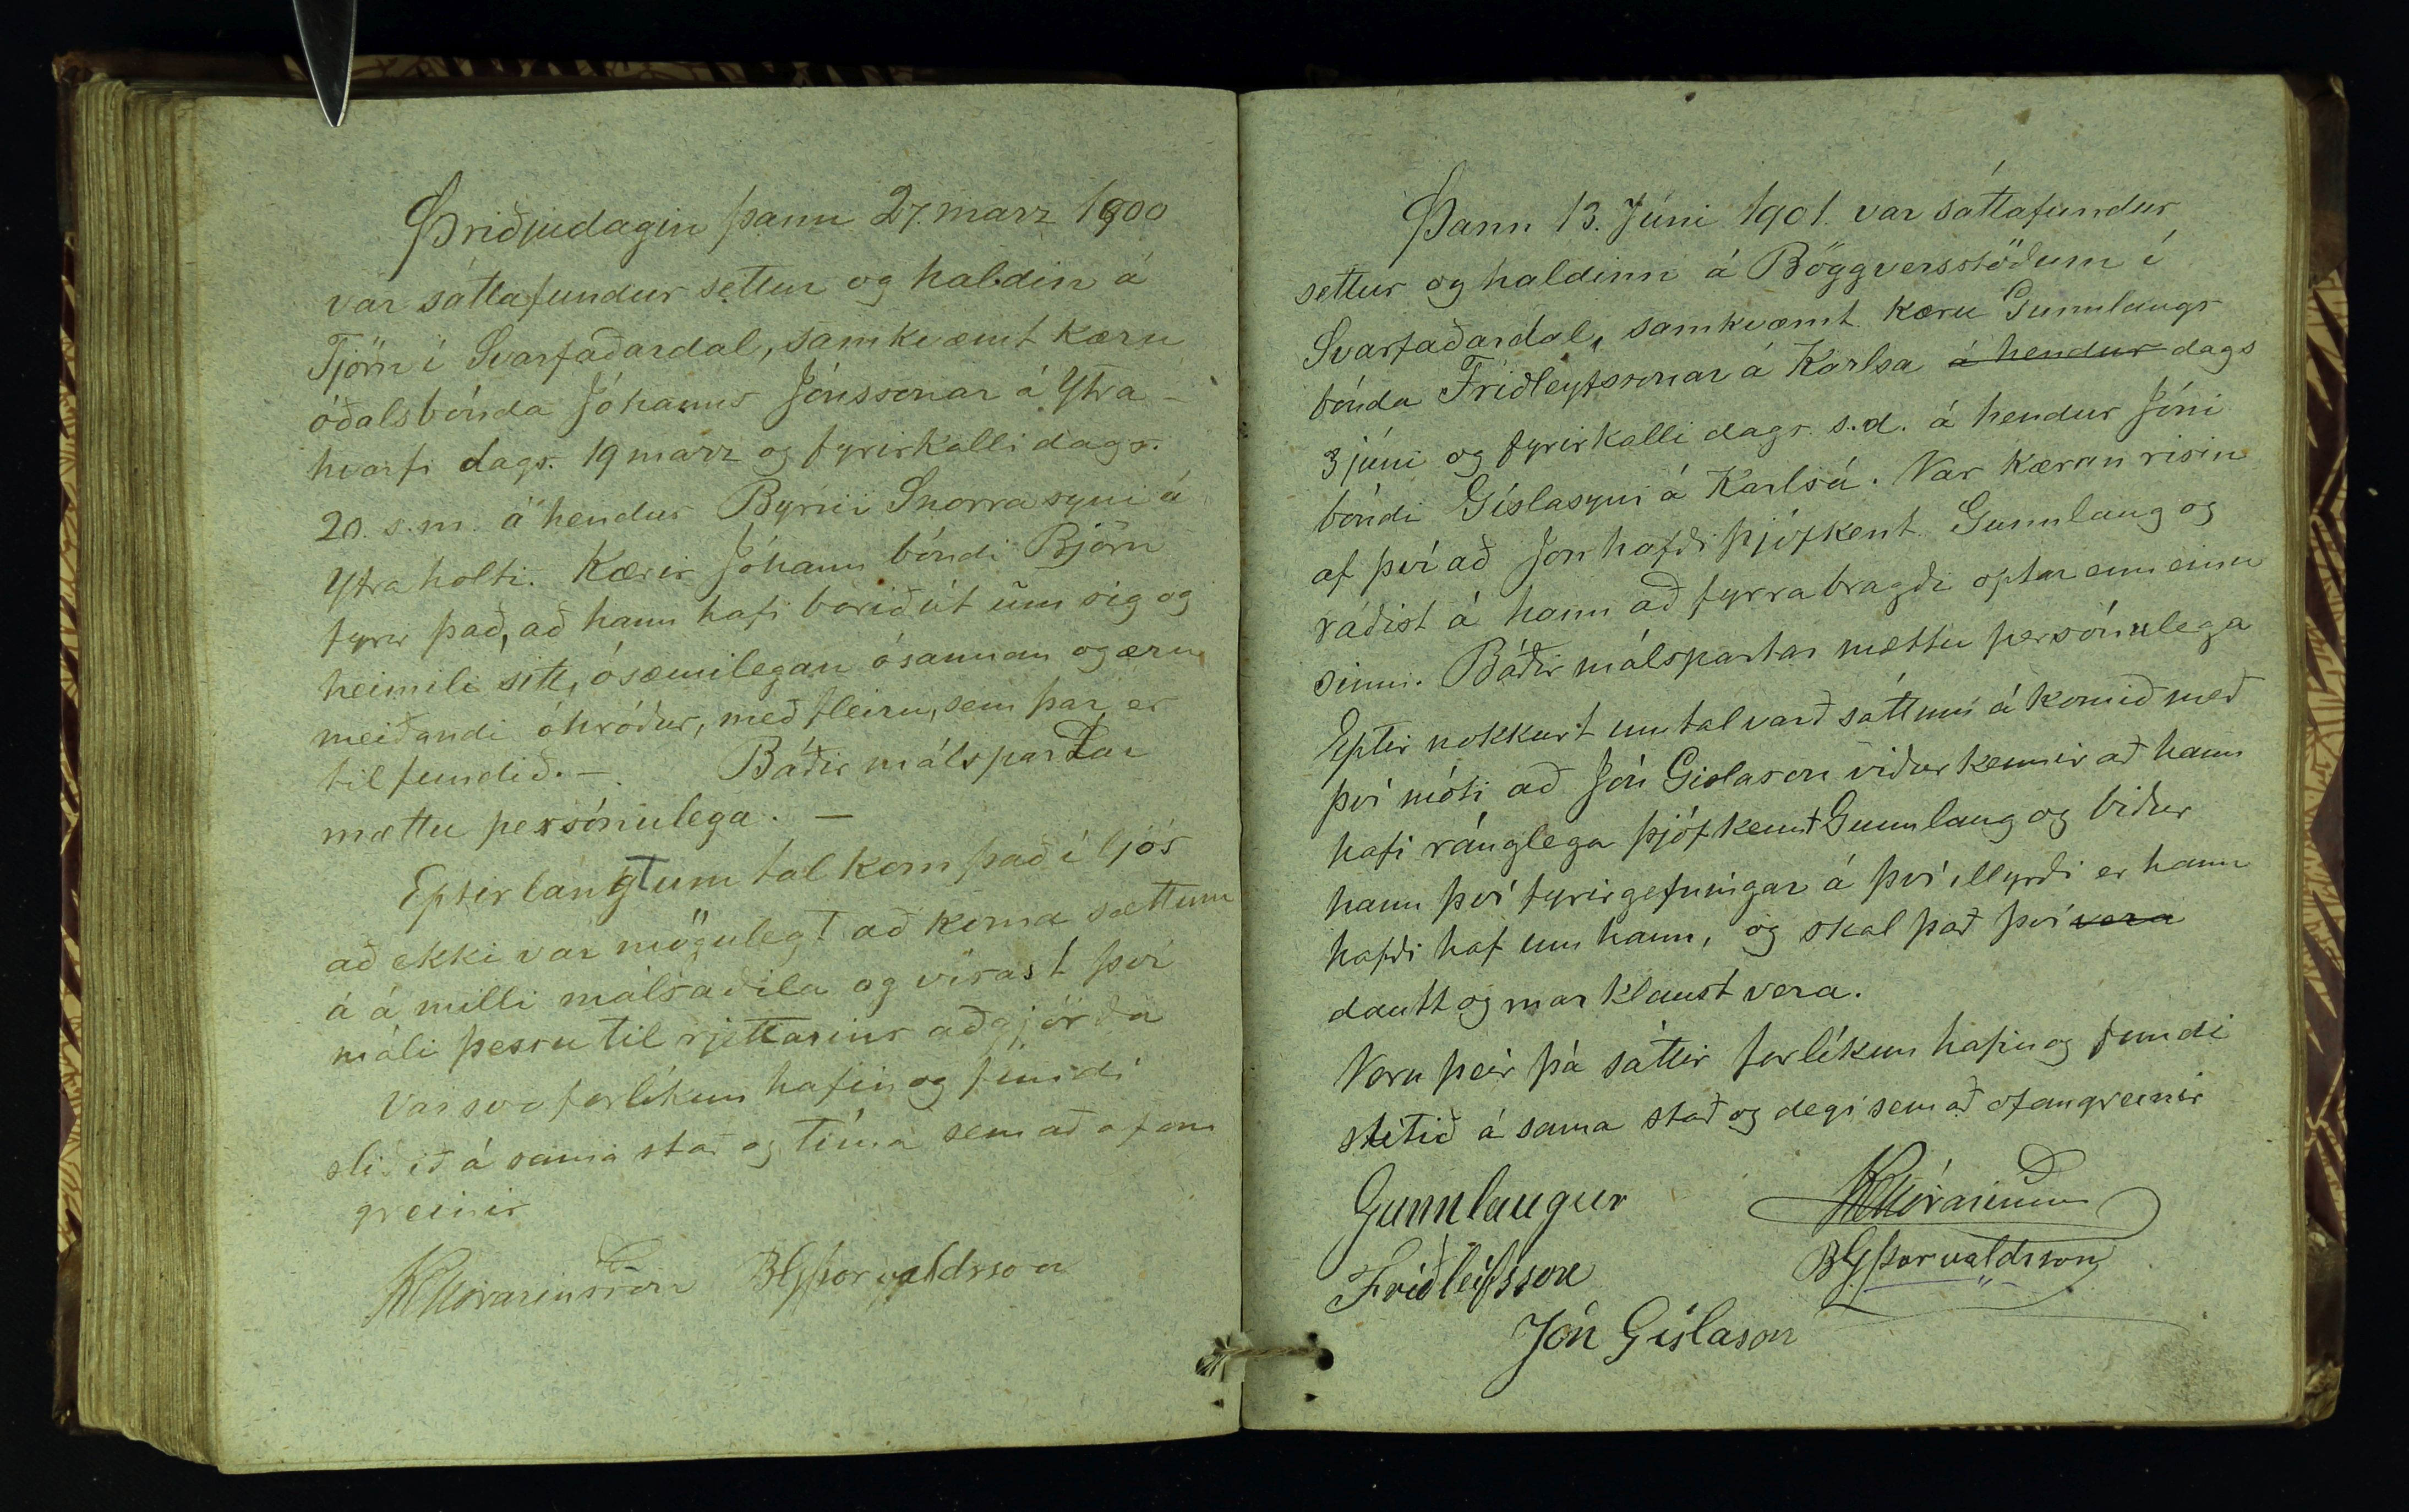 Þriðjudagin þann 27. marz 1900
var sáttafundur settur og haldin á
Tjörn í Svarfaðardal, samkvæmt kæru
óðalsbónda Jóhanns Jónssonar á Ytra-
hvarfi dags. 19 marz og fyrirkalli dags.
20. s.m. á hendur Byrni Snorrasyni á
Ytraholti. Kærir Jóhann bóndi Björn
fyrir það, að hann hafi borið út um sig og
heimili sitt, ósæmilegan ósannan og æru
meiðandi óhróður, með fleiru, sem þar er
til fundið. – Báðir málspartar
mættu persónulega. –
Eptir langt um tal kom það í ljós
að ekki var mögulegt að koma sættum
á á milli málsaðila og vísast því
máli þessu til rjettarins aðgjörða
Var svo forlíkun hafin og fundi
slitið á sama stað og tíma sem að ofan
greinir
BGÞorvaldsson
Þann 13. Júni 1901. var sáttafundur
settur og haldinn á Böggversstöðum í
Svarfaðardal, samkvæmt kæru Gunnlaugs
bónda Friðleyfssonar á Karlsa á hendur dags
3 júni og fyrirkalli dags. s.d. á hendur Jóni
bóndi Gíslasyni á Karlsá. Var kæran risin
af því að Jon hafði þjófkent Gunnlaug og
ráðist á hann að fyrra bragði optar enn einu
sinni. Báðir málspartar mættu persónulega
Eptir nokkurt umtal varð sáttum á komið með
því móti að Jón Gislason viðurkennir að hann
hafi ránglega þjófkent Gunnlaug og biður
hann því fyrirgefningar á því illyrði er hann
hafði haf um hann, og skal það því vera
dautt og marklaust vera.
Voru þeir þá sáttir forlíkun hafin og fundi
slitið á sama stað og degi sem að ofangreinir
Gunnlaugur
Friðleifsson
BGÞorvaldsson
Jón Gíslason